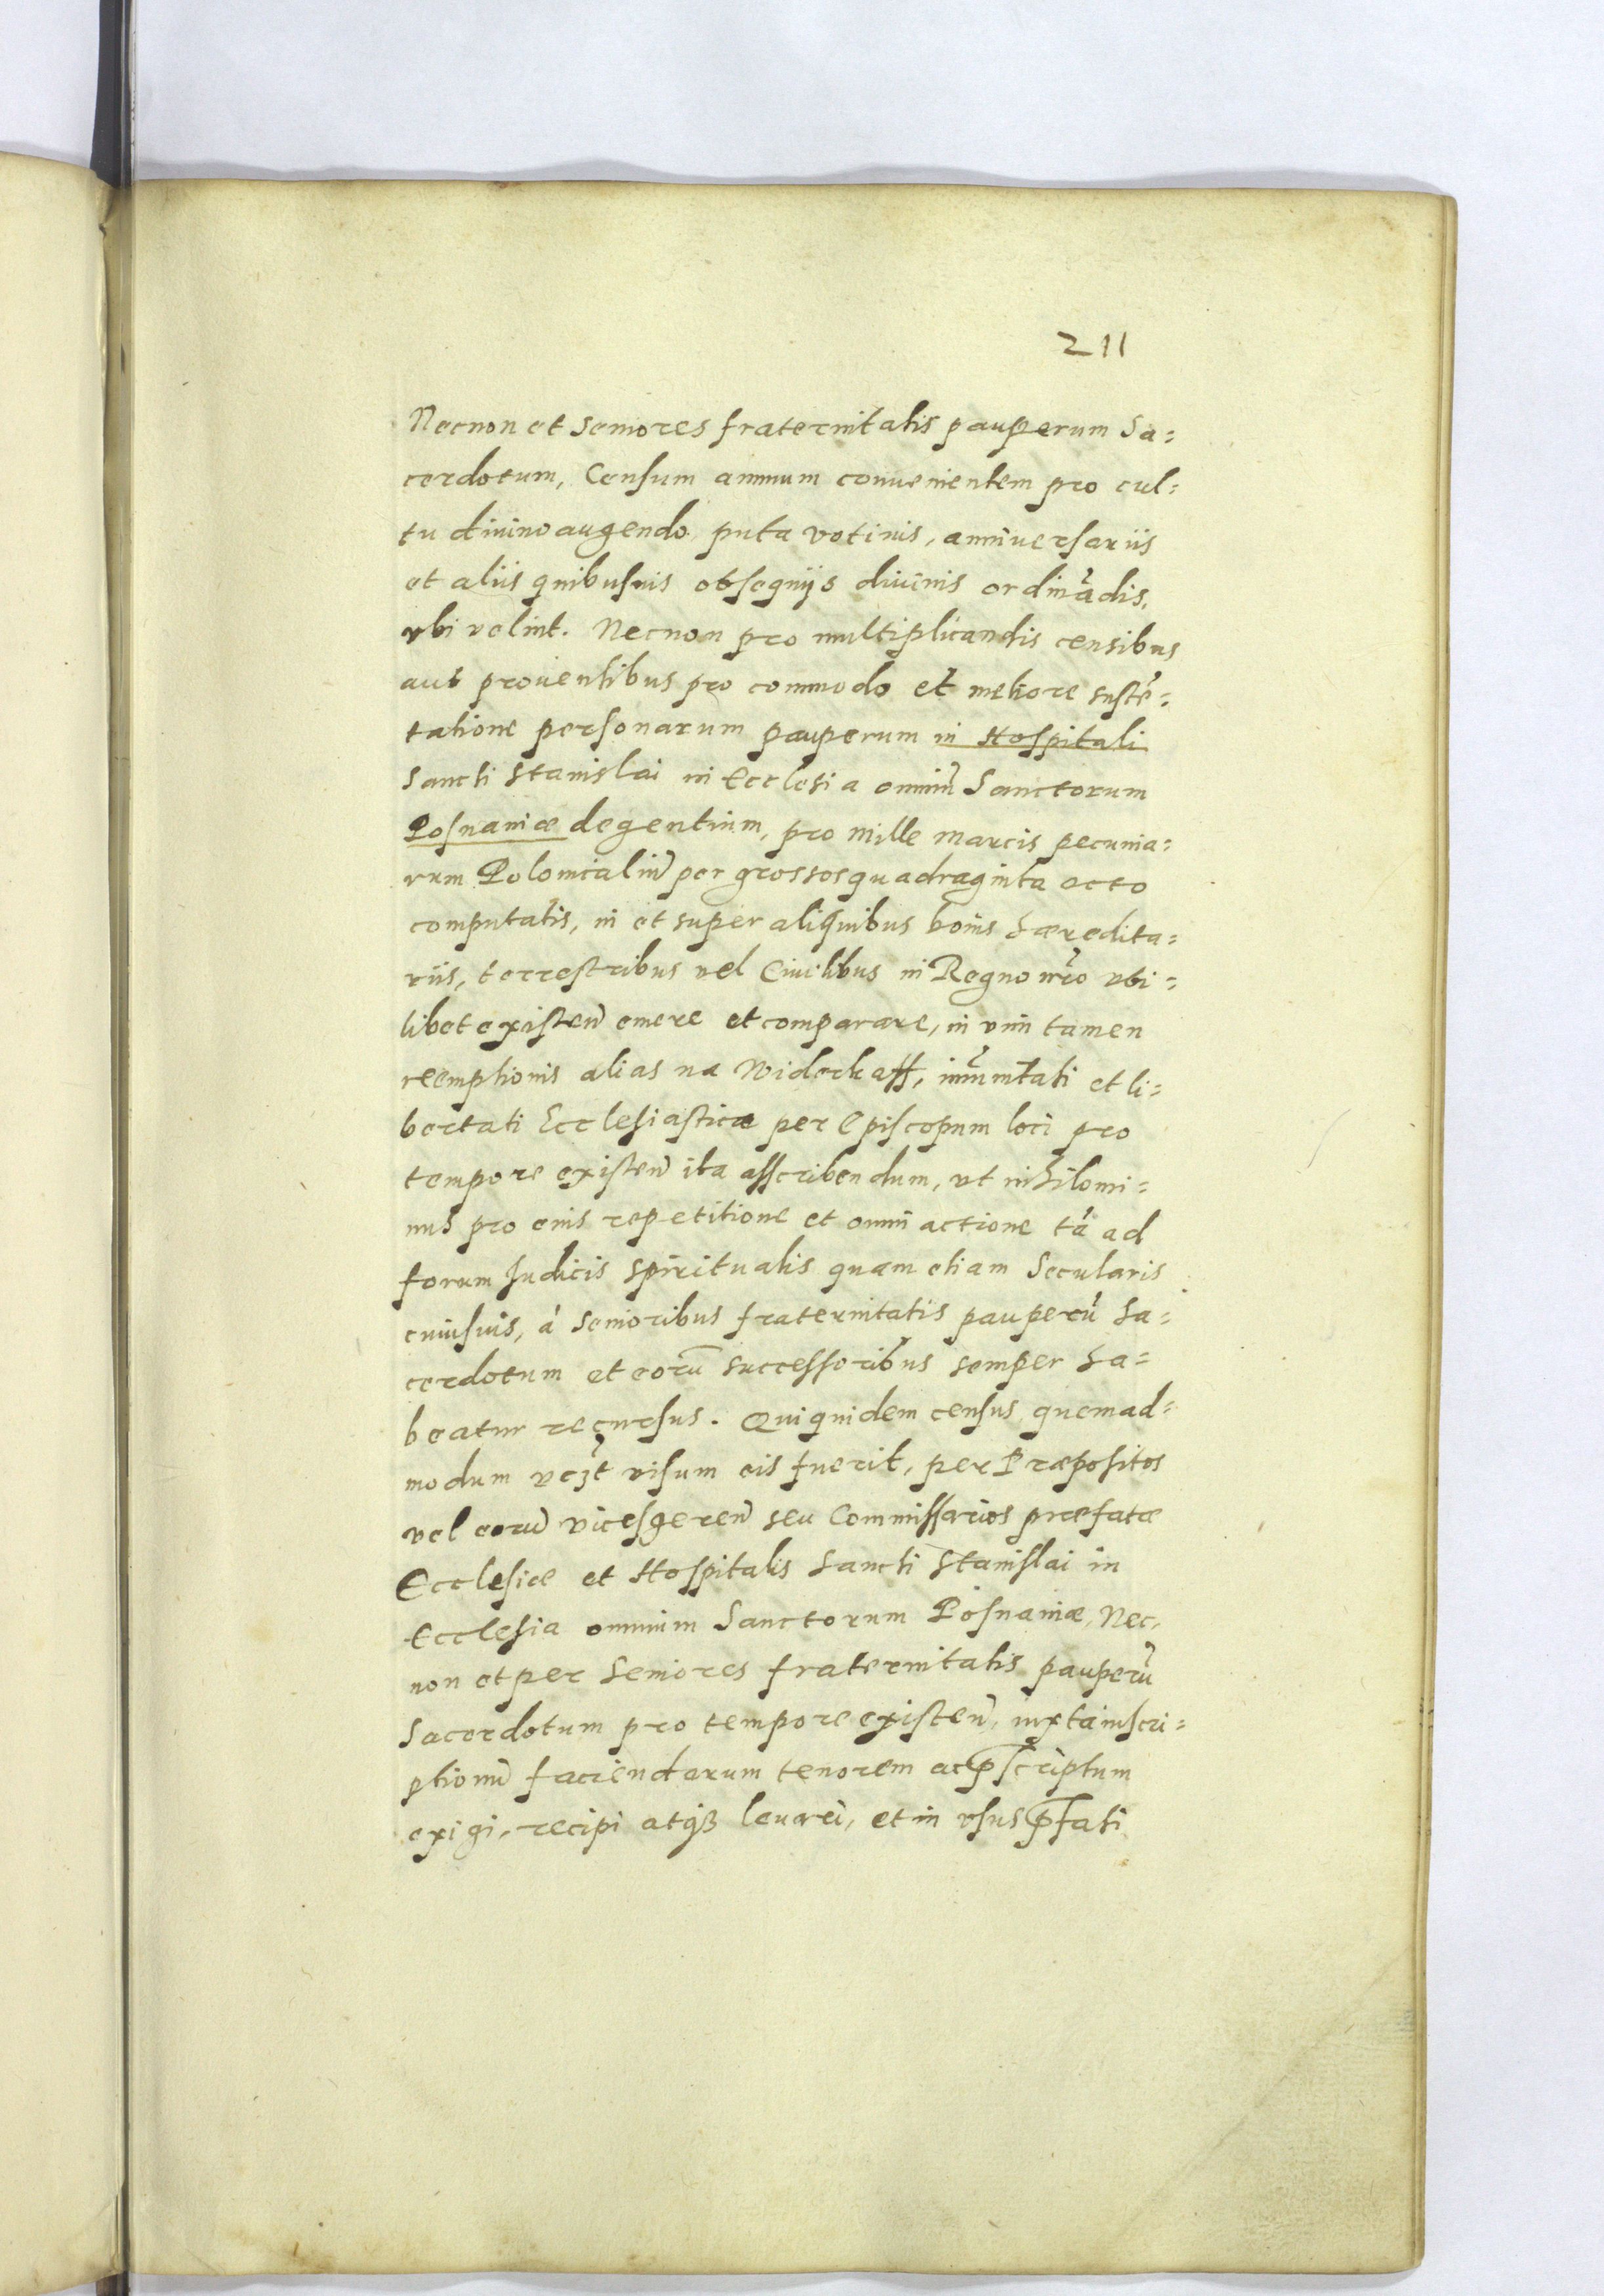 211
Necnon et seniores fraternitatis pauperum Sa=
cerdotum, Censum annuum conuenientem pro cul=
tu diuino augendo puta votiuis, anniuersariis
et aliis quibusuis obsequijs diuinis ordinãdis,
vbi velint. Necnon pro multiplicandis censibus
aut prouentibus pro commodo et meliore sustẽ=
tatione personarum pauperum in Hospitali
Sancti Stanislai in Ecclesia omniũ Sanctorum
Posnaniæ degentium, pro mille marcis pecunia=
rum Polonicaliũ per grossos quadraginta octo
computatis, in et super aliquibus bonis hæredita=
riis, terrestribus vel Ciuilibus in Regno nr̃o vbi=
libet existeñ emere et comparare, in vim tamen
reemptionis alias na Widerkaff, im̃unitati et li=
bertati Ecclesiasticæ per Episcopum loci pro
tempore existeñ ita asscribendum, vt nihilomi=
nus pro eius repetitione et omni actione tã ad
forum Iudicis spiritualis quam etiam Secularis
cuiusuis, à senioribus fraternitatis pauperũ Sa=
cerdotum et eorũ successoribus semper ha=
beatur recursus. Qui quidem census quemad=
modum vt visum eis fuerit, per Præpositos
vel eorũ vicesgereñ seu Commissarios præfatæ
Ecclesiæ et Hospitalis Sancti Stanislai in
Ecclesia omnium Sanctorum Posnaniæ, Nec,
non et per Seniores fraternitatis pauperũ
Sacerdotum pro tempore existeñ, iuxta inscri=
ptionũ faciendarum tenorem ac p̃scriptum
exigi, recipi atqꝫ leuari, et in vsus p̃fati